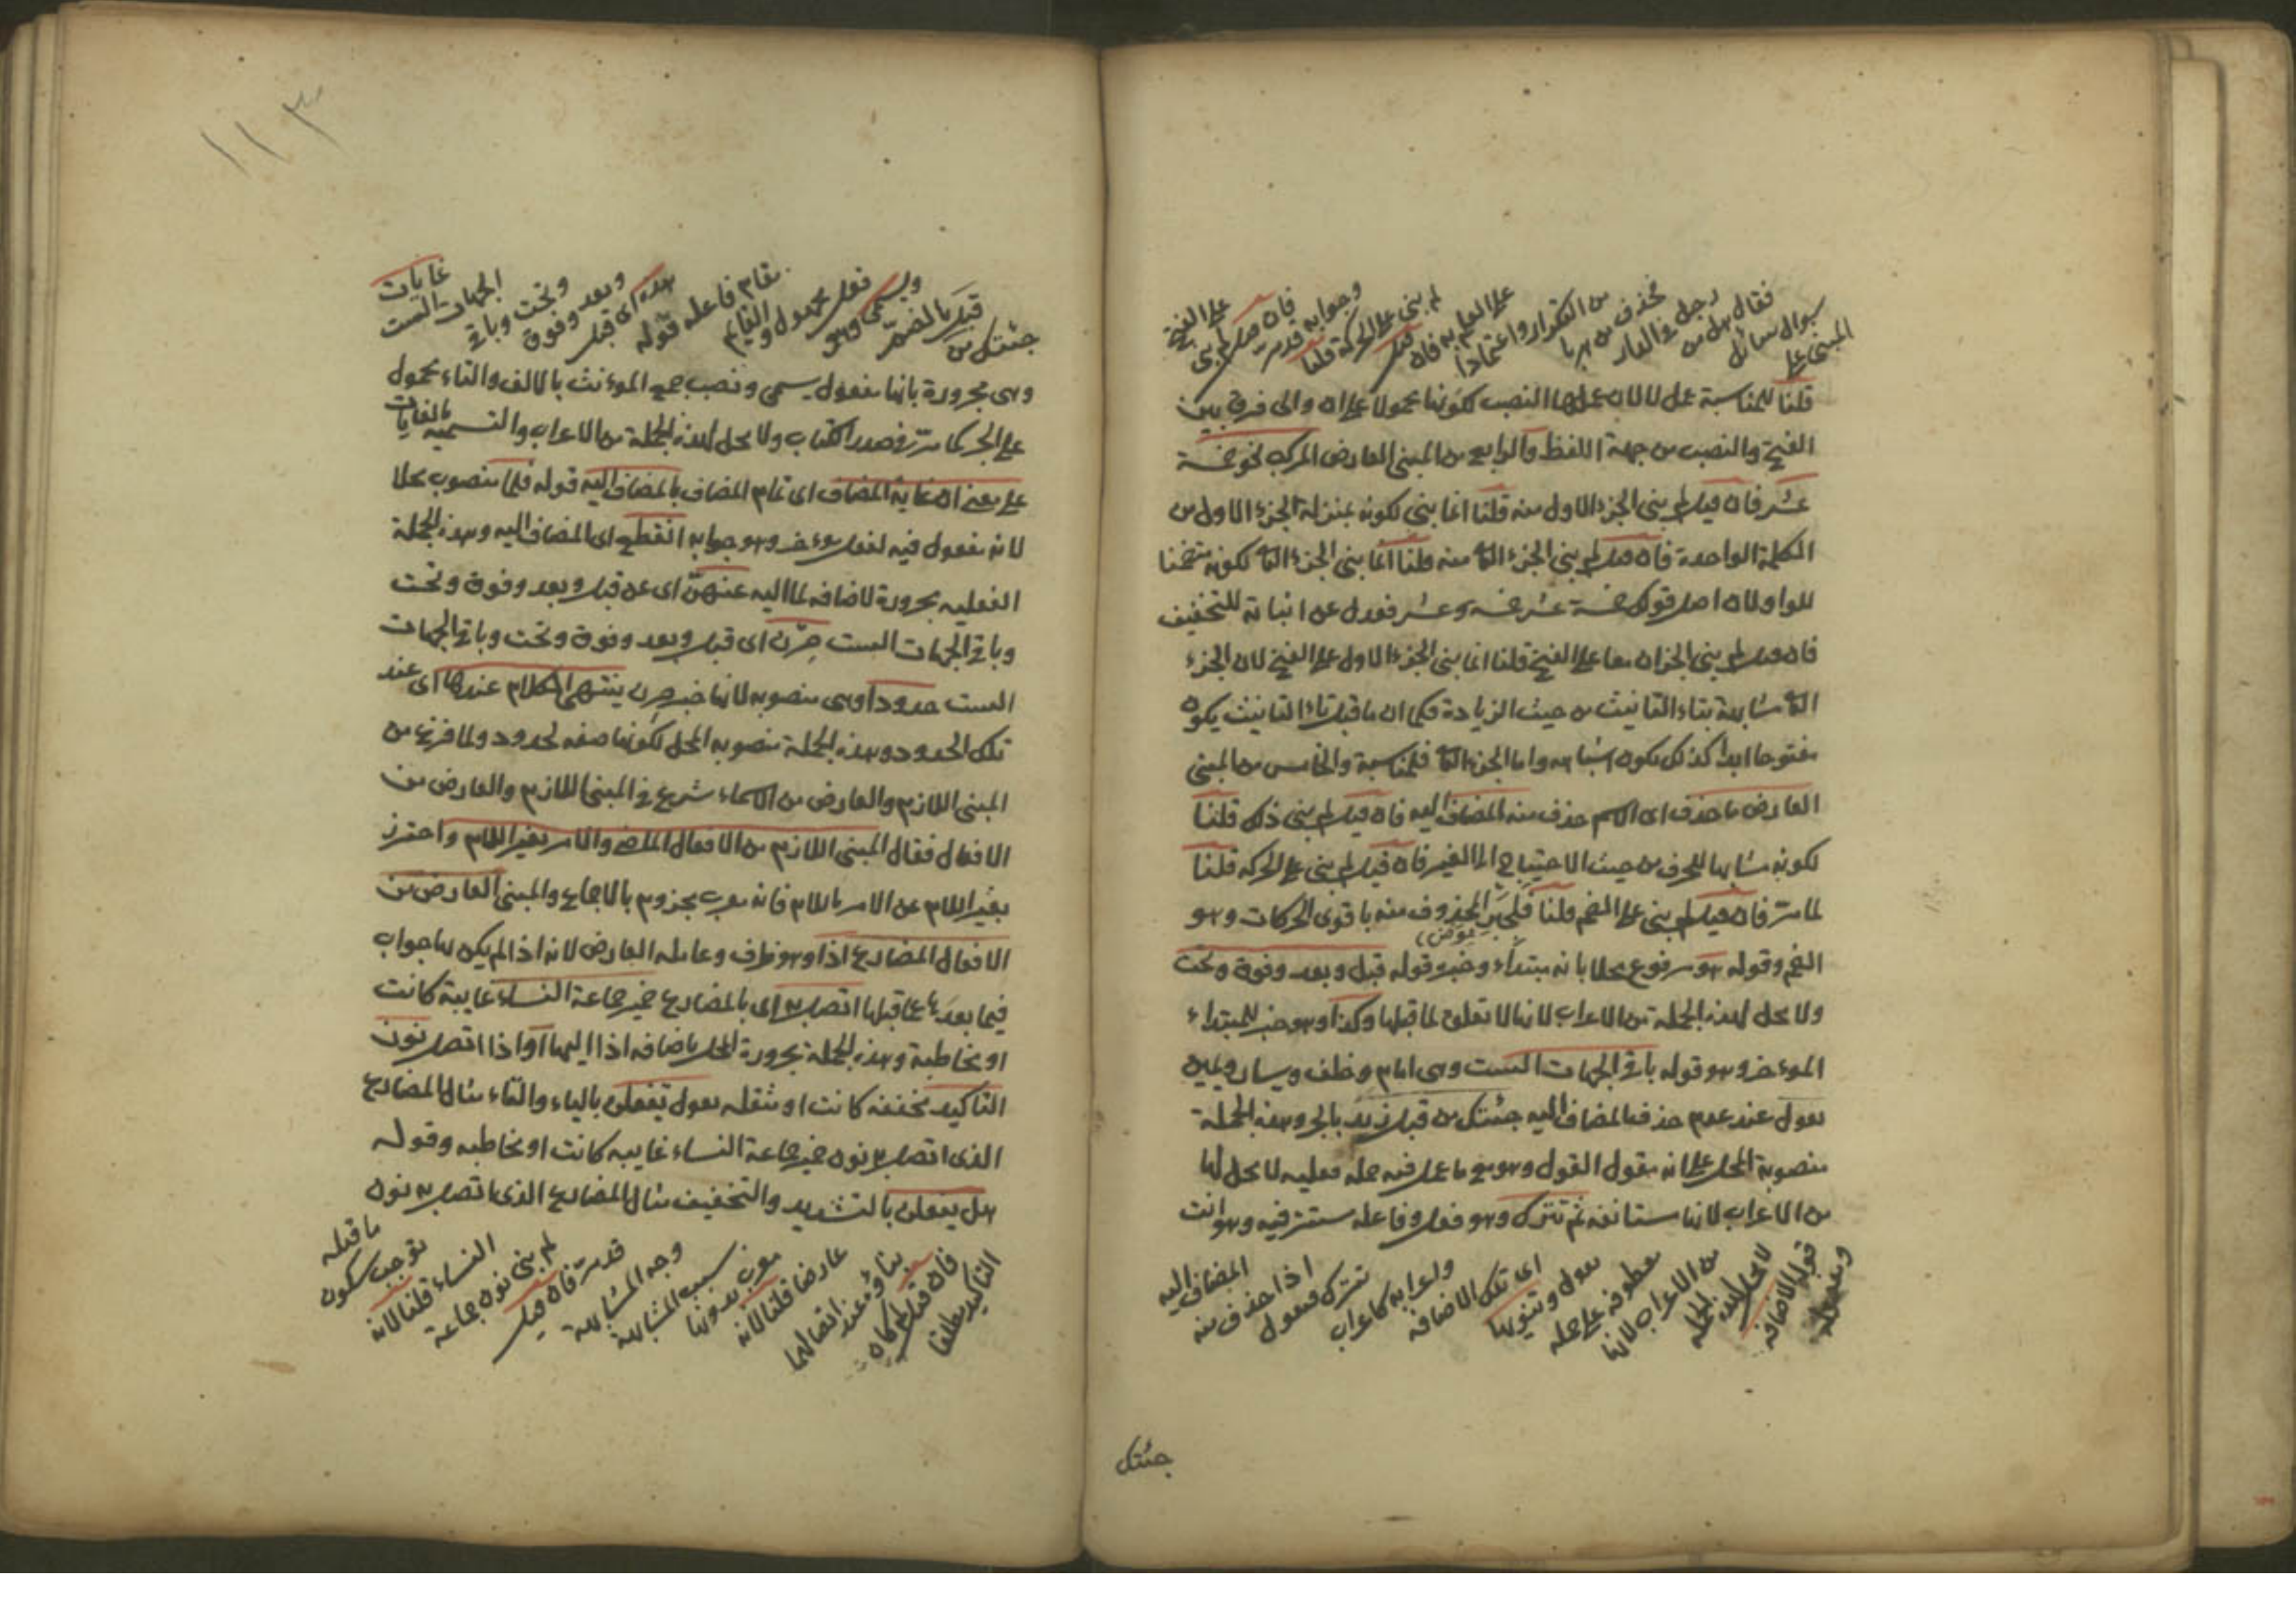 المبنى على
سوال سائل
فقال هل من
رجل فى الدار
فحذف من هربا
من التكرار واعتمادا
على العلم به فان
قيل لم بنى على الحركة قلنا
وجوابه قد مر
فان قيل لم بنى
على الفتح
قلنا للمناسبة عمل لا لان عملها النصب لكونها محمولا على ان والى فرق بين
الفتح والنصب من جهة اللفظ والرابع من المبنى العارض المركب نحو خمسة
عشر فان قيل لم بنى الجزء الاول منه قلنا انما بنى لكونه بمنزلة الجزء الاول من
الكلمة الواحدة فان قيل لم بنى الجزء الثانى منه قلنا انما بنى الجزء الثانى لكونه متضمنا
للواو لان اصل قولك خمسة عشر خمسة وعشر فعدل عن اثباته للتخفيف
فان قيل لم بنى الجزان معا على الفتح قلنا انما بنى الجزء الاول على الفتح لان الجزء
الثانى مشابهة بتاء التانيث من حيث الزيادة فكما ان ما قبل تاء التانيث يكون
مفتوحا ابدا كذلك يكون اشباهه واما الجزء الثانى فلمناسبة والخامس من المبنى
العارض ما حذف اى اسم حذف منه المضاف اليه فان قيل لم بنى ذلك قلنا
لكونه مشابها للحرف من حيث الاحتياج الى الغير فان قيل لم بنى على الحركة قلنا
لما مر فان قيل لم بنى على الضم قلنا فلجبر المحذوف منه باقوى الحركات وهو
الضم وقوله هو مرفوع محلا بانه مبتداء وخبره قوله قبل وبعد وفوق وتحت
ولا محل لهذه الجملة من الاعراب لانها لا تعلق لما قبلها وكذا وهو خبر للمبتداء
الموءخر وهو قوله باقى الجهات الست وهى امام وخلف ويسار ويمين
تقول عند عدم حذف المضاف اليه جئتك من قبل زيد بالجر وهذه الجملة
منصوبة المحل على انه مقول القول وهو مع ما عمل فيه جملة فعليه لا محل لها
من الاعراب لانها مستانفة ثم تترك وهو فعل وفاعله مستتر فيه وهو انت
ومفعوله
قوله الاضافه
لا محل لهذه الجملة
من الاعراب لانها
معطوفه على جملة
تقول وتنويها
اى تلك الاضافه
واعرابه كاعراب
تترك فتقول
اذا حذف منه
المضاف اليه
جئتك
١١٣
جئتك من
قبل بالضم
ويسمى وهو
فعل مجهول والقايم
مقام فاعله قوله
هذه اى قبل
وبعد وفوق
وتحت وباقى
الجهات الست
غايات
وهى مجرورة بانها مفعول يسمى ونصب جمع الموءنث بالالف والتاء محمول
على الجر كما مر فى صدر الكتاب ولا محل لهذه الجملة من الاعراب والتسميه بالغايات
على معنى ان غاية المضاف اى تمام المضاف بالمضاف اليه قوله فلما منصوب محلا
لانه مفعول فيه لفعل موءخر وهو جوابه انقطع اى المضاف اليه وهذه الجملة
الفعليه مجرورة لاضافه لما اليه عنهن اى عن قبل وبعد وفوق وتحت
وباقى الجهات الست صرن اى قبل وبعد وفوق وتحت وباقى الجهات
الست حدودا وهى منصوبه لانها خبر صرن ينتهى الكلام عندها اى عند
تلك الحدود وهذه الجملة منصوبه المحل لكونها صفه لحدود ولما فرغ من
المبنى اللازم والعارض من الاسماء شرع فى المبنى اللازم والعارض من
الافعال فقال المبنى اللازم من الافعال الماضى والامر بغير اللام واحترز
بغير اللام عن الامر باللام فانه معرب مجزوم بالاجماع والمبنى العارض من
الافعال المضارع اذا وهو ظرف وعامله العارض لانه اذا لم يكن لها جواب
فيما بعدها عما قبلها اتصل به اى بالمضارع ضمير جماعة النساء غايبة كانت
او مخاطبة وهذه الجملة مجرورة المحل باضافه اذا اليها او اذا اتصل نون
التاكيد مخففه كانت او مثقله تقول تفعلن بالياء والتاء مثال المضارع
الذى اتصل به نون ضمير جماعة النساء غايبه كانت او مخاطبه وقوله
هل يفعلن بالتشديد والتخفيف مثال المضارع الذى اتصل به نون
التاكيد مطلقا
فان قيل لم كان
بناؤه عند اتصالهما
عارضا قلنا لانه
معرب بدونها
سبب المشابهة
وجه المشابهة
قد مر فان قيل
لم بنى نون جماعة
النساء قلنا لانه
توجب سكون
ما قبله